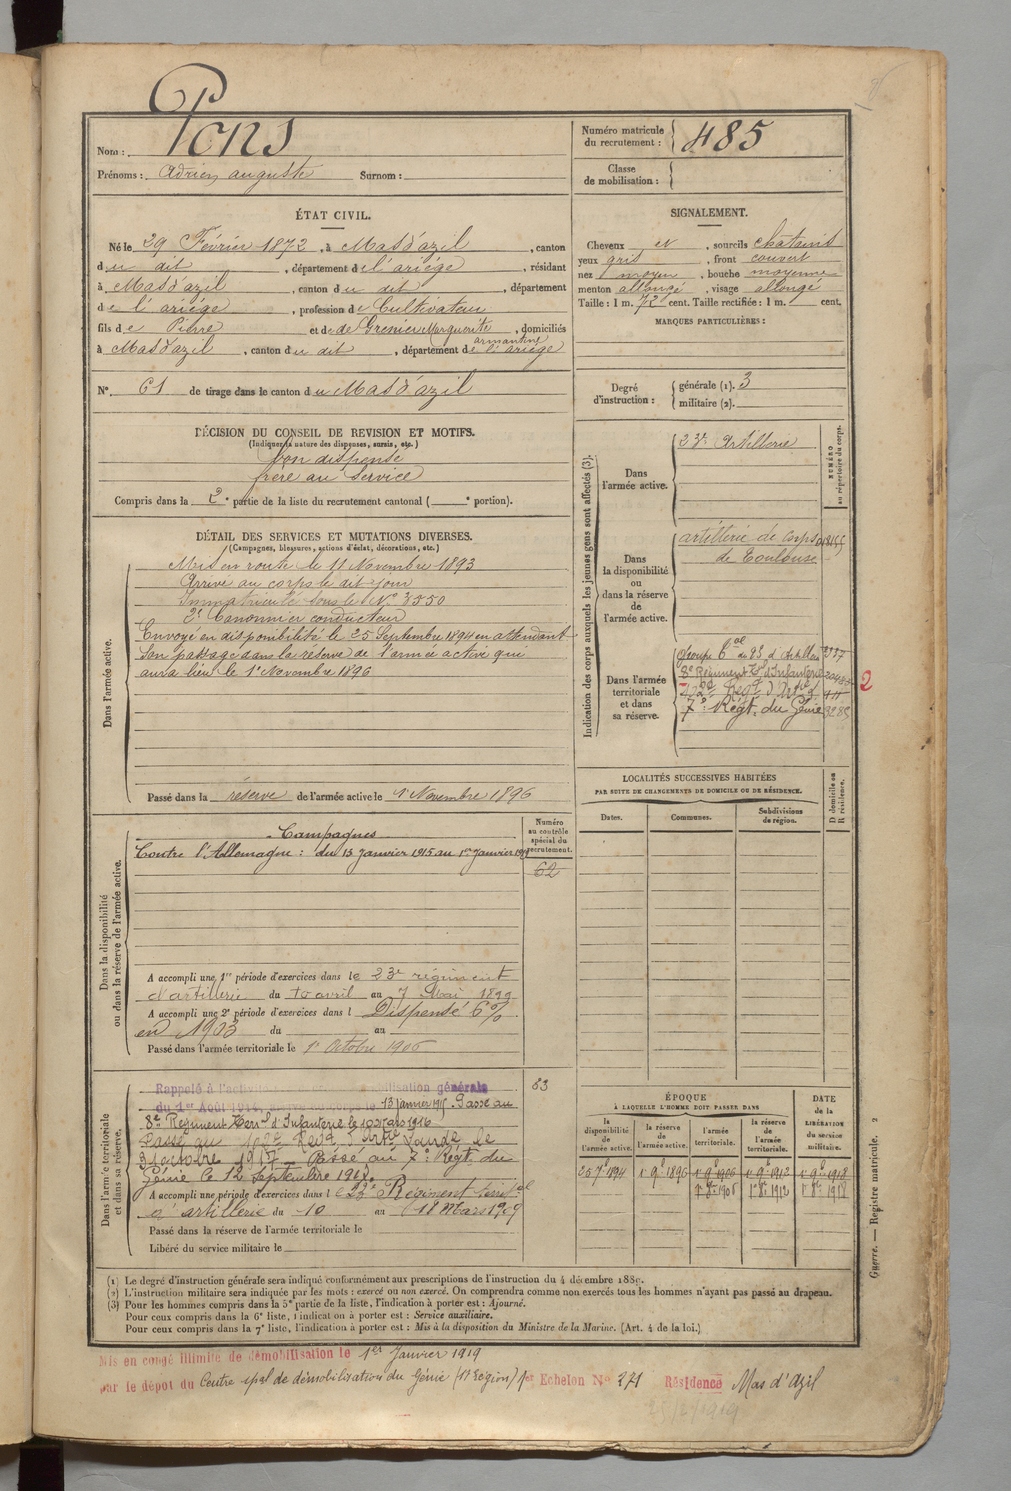 Nom : Pons
Prénoms : Adrien auguste Surnom :
Numéro matricule du recrutement : 485
Classe de mobilisation :
ÉTAT CIVIL.
Né le 29 Février 1872, à Mas d'azil, canton
du dit, département de l'ariége, résidant
à Mas d'azil, canton du dit, département
de l'ariége, profession de Cultivateur
fils de Pierre et de de Grenier Marguerite, domiciliés
armantine
à Mas d'azil, canton du dit, département de l'ariége
N° 61 de tirage dans le canton du Mas d'azil
SIGNALEMENT.
Cheveux et, sourcils chatains
yeux gris, front couvert
nez moyen, bouche moyenne
menton allongé, visage allongé
Taille : 1 m. 72 cent. Taille rectifiée : 1 m. cent.
MARQUES PARTICULIÈRES :
Degré d'instruction : générale (1). 3
militaire (2).
DÉCISION DU CONSEIL DE REVISION ET MOTIFS.
(Indiquer la nature des dispenses, sursis, etc.)
bon dispensé
frère au service
Compris dans la 2e partie de la liste du recrutement cantonal ( e portion).
DÉTAIL DES SERVICES ET MUTATIONS DIVERSES.
(Campagnes, blessures, actions d'éclat, décorations, etc.)
Dans l'armée active.
Mis en route le 11 Novembre 1893
Arrivé au corps le dit jour
Immatriculé sous le N° 3550
2e Canonnier conducteur
Envoyé en disponibilité le 25 Septembre 1894 en attendant
son passage dans la réserve de l'armée active qui
aura lieu le 1er Novembre 1896
Passé dans la réserve de l'armée active le 1er Novembre 1896
Indication des corps auxquels les jeunes gens sont affectés (3).
NUMÉRO au répertoire du corps.
Dans l'armée active.
23e Artillerie
Dans la disponibilité ou dans la réserve de l'armée active.
artillerie de corps
de Toulouse
Dans l'armée territoriale et dans sa réserve.
Groupe tal du 23 d'Artillerie
8e Régiment Tal d'Infanterie
7e Régt. du Génie
2
LOCALITÉS SUCCESSIVES HABITÉES
PAR SUITE DE CHANGEMENTS DE DOMICILE OU DE RÉSIDENCE.
Dates. Communes. Subdivisions de région. D domicile ou R résidence.
Dans la disponibilité ou dans la réserve de l'armée active.
Numéro au contrôle spécial du recrutement.
62
Campagnes
Contre l'Allemagne : du 13 Janvier 1915 au 1er Janvier 1919
A accompli une 1re période d'exercices dans le 23e régiment
d'artillerie du 10 avril au 7 Mai 1899
A accompli une 2e période d'exercices dans l Dispensé 6%
en 1903 du au
Passé dans l'armée territoriale le 1er Octobre 1906
Dans l'armée territoriale et dans sa réserve.
83
Rappelé à l'activité
du 1er Août 1914, 13 janvier 1915. Passé au
8e Régiment Terral d'Infanterie le 10 Mars 1916
Passé au 102e Regt d'Artie Lourde le
31 octobre 1917 - Passé au 7e Régt. du
Génie le 12 Septembre 1918.
A accompli une période d'exercices dans le 23e Régiment territal
d'artillerie du 10 au 18 Mars 1909
Passé dans la réserve de l'armée territoriale le
Libéré du service militaire le
ÉPOQUE
À LAQUELLE L'HOMME DOIT PASSER DANS
la disponibilité de l'armée active. la réserve de l'armée active. l'armée territoriale. la réserve de l'armée territoriale.
DATE de la LIBÉRATION du service militaire.
25 7bre 1894 1er 9bre 1896 1er 9bre 1906 1er 9bre 1912 1er 9bre 1918
1er 8bre 1906 1er 8bre 1912 1er 8bre 1918
(1) Le degré d'instruction générale sera indiqué conformément aux prescriptions de l'instruction du 4 décembre 1889.
(2) L'instruction militaire sera indiquée par les mots : exercé ou non exercé. On comprendra comme non exercés tous les hommes n'ayant pas passé au drapeau.
(3) Pour les hommes compris dans la 5e partie de la liste, l'indication à porter est : Ajourné.
Pour ceux compris dans la 6e liste, l'indication à porter est : Service auxiliaire.
Pour ceux compris dans la 7e liste, l'indication à porter est : Mis à la disposition du Ministre de la Marine. (Art. 4 de la loi.)
Guerre. — Registre matricule. 2
Mis en congé illimité de démobilisation le 1er Janvier 1919
par le dépôt du Centre spal de démobilisation du Génie (17e Région) 1er Echelon N° 271 Résidence Mas d'Azil